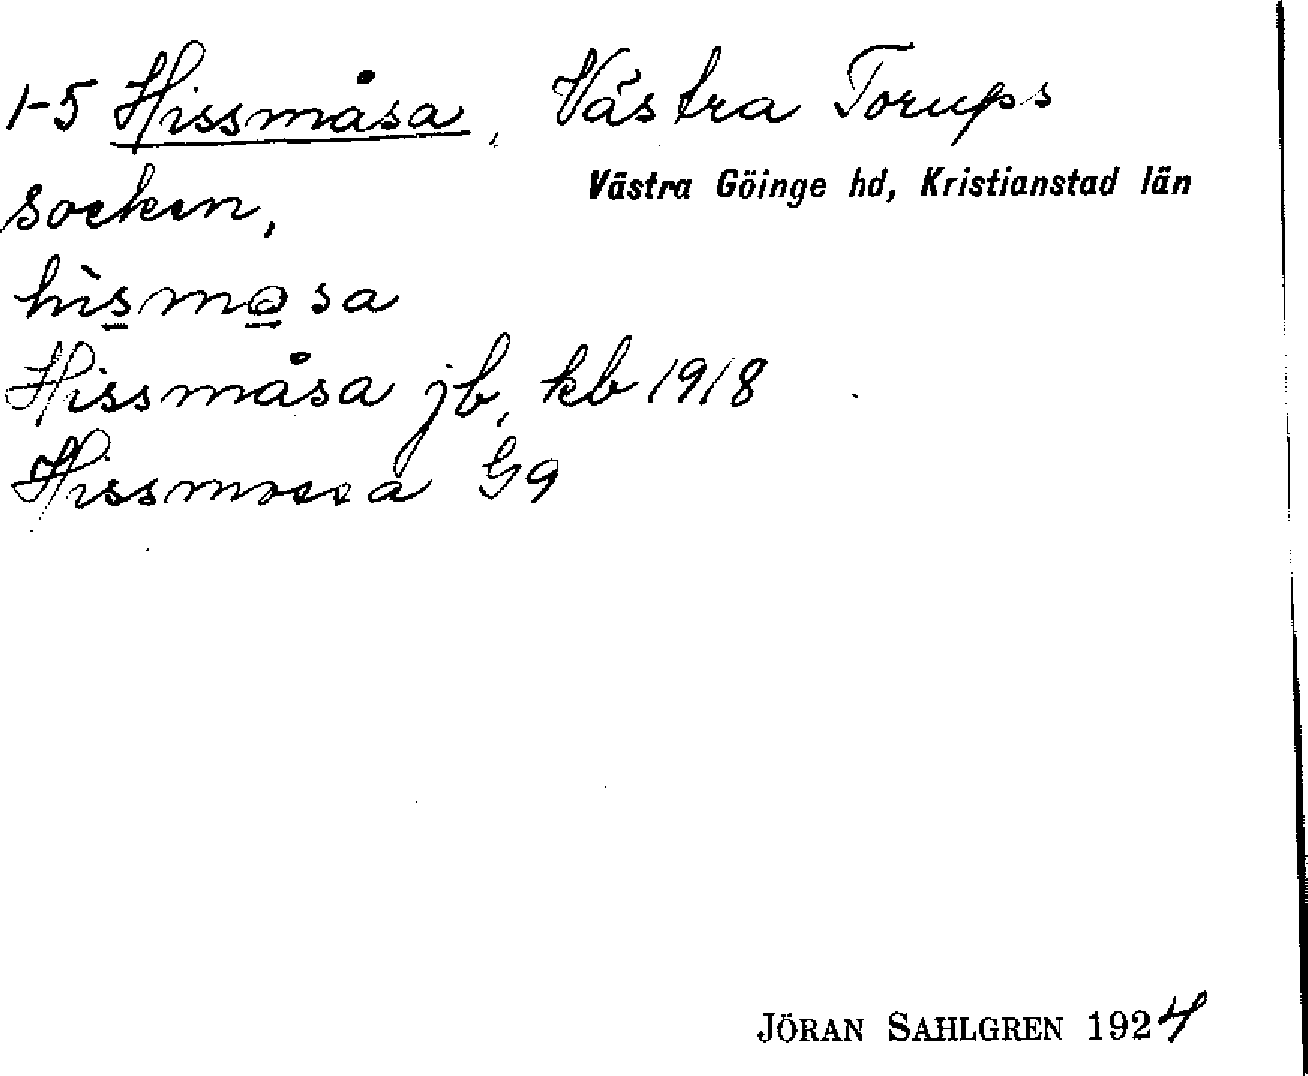 1-5 Hissmåsa, Västra Torups
Västra Göinge hd, Kristianstad län
socken,
hìsmosa
Hissmåsa jb, kb 1918
Hissmossa G9
JÖRAN SAHLGREN 1924